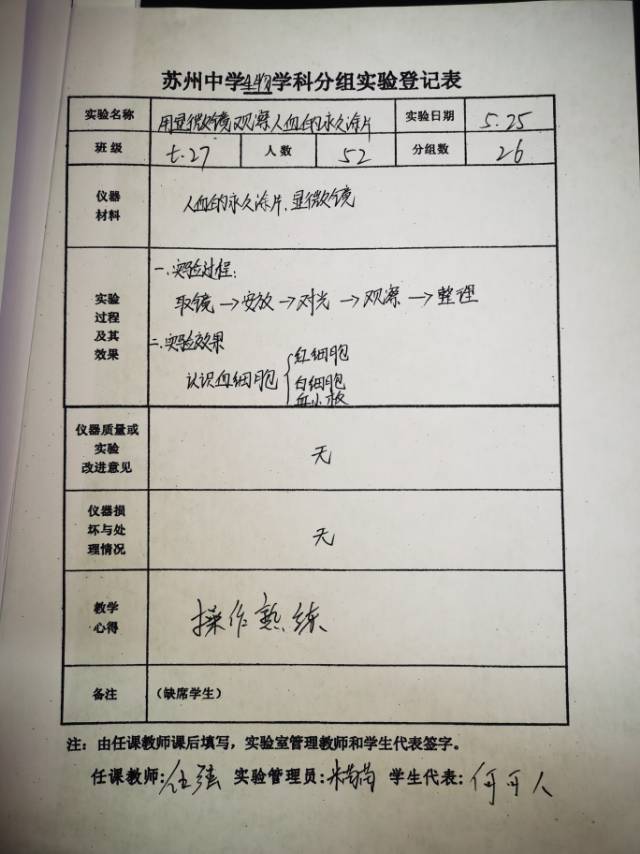 苏州中学生物学科分组实验登记表
实验名称 用显微镜观察人血的永久涂片 实验日期 5.25
班级 七.27 人数 52 分组数 26
仪器
材料
人血的永久涂片.显微镜
实验
过程
及其
效果
一.实验过程:
取镜→安放→对光→观察→整理
二.实验效果
认识血细胞
红细胞
白细胞
血小板
仪器质量或
实验
改进意见
无
仪器损
坏与处
理情况
无
教学
心得
操作熟练
备注 (缺席学生)
注:由任课教师课后填写,实验室管理教师和学生代表签字。
任课教师: 实验管理员: 学生代表:何可人